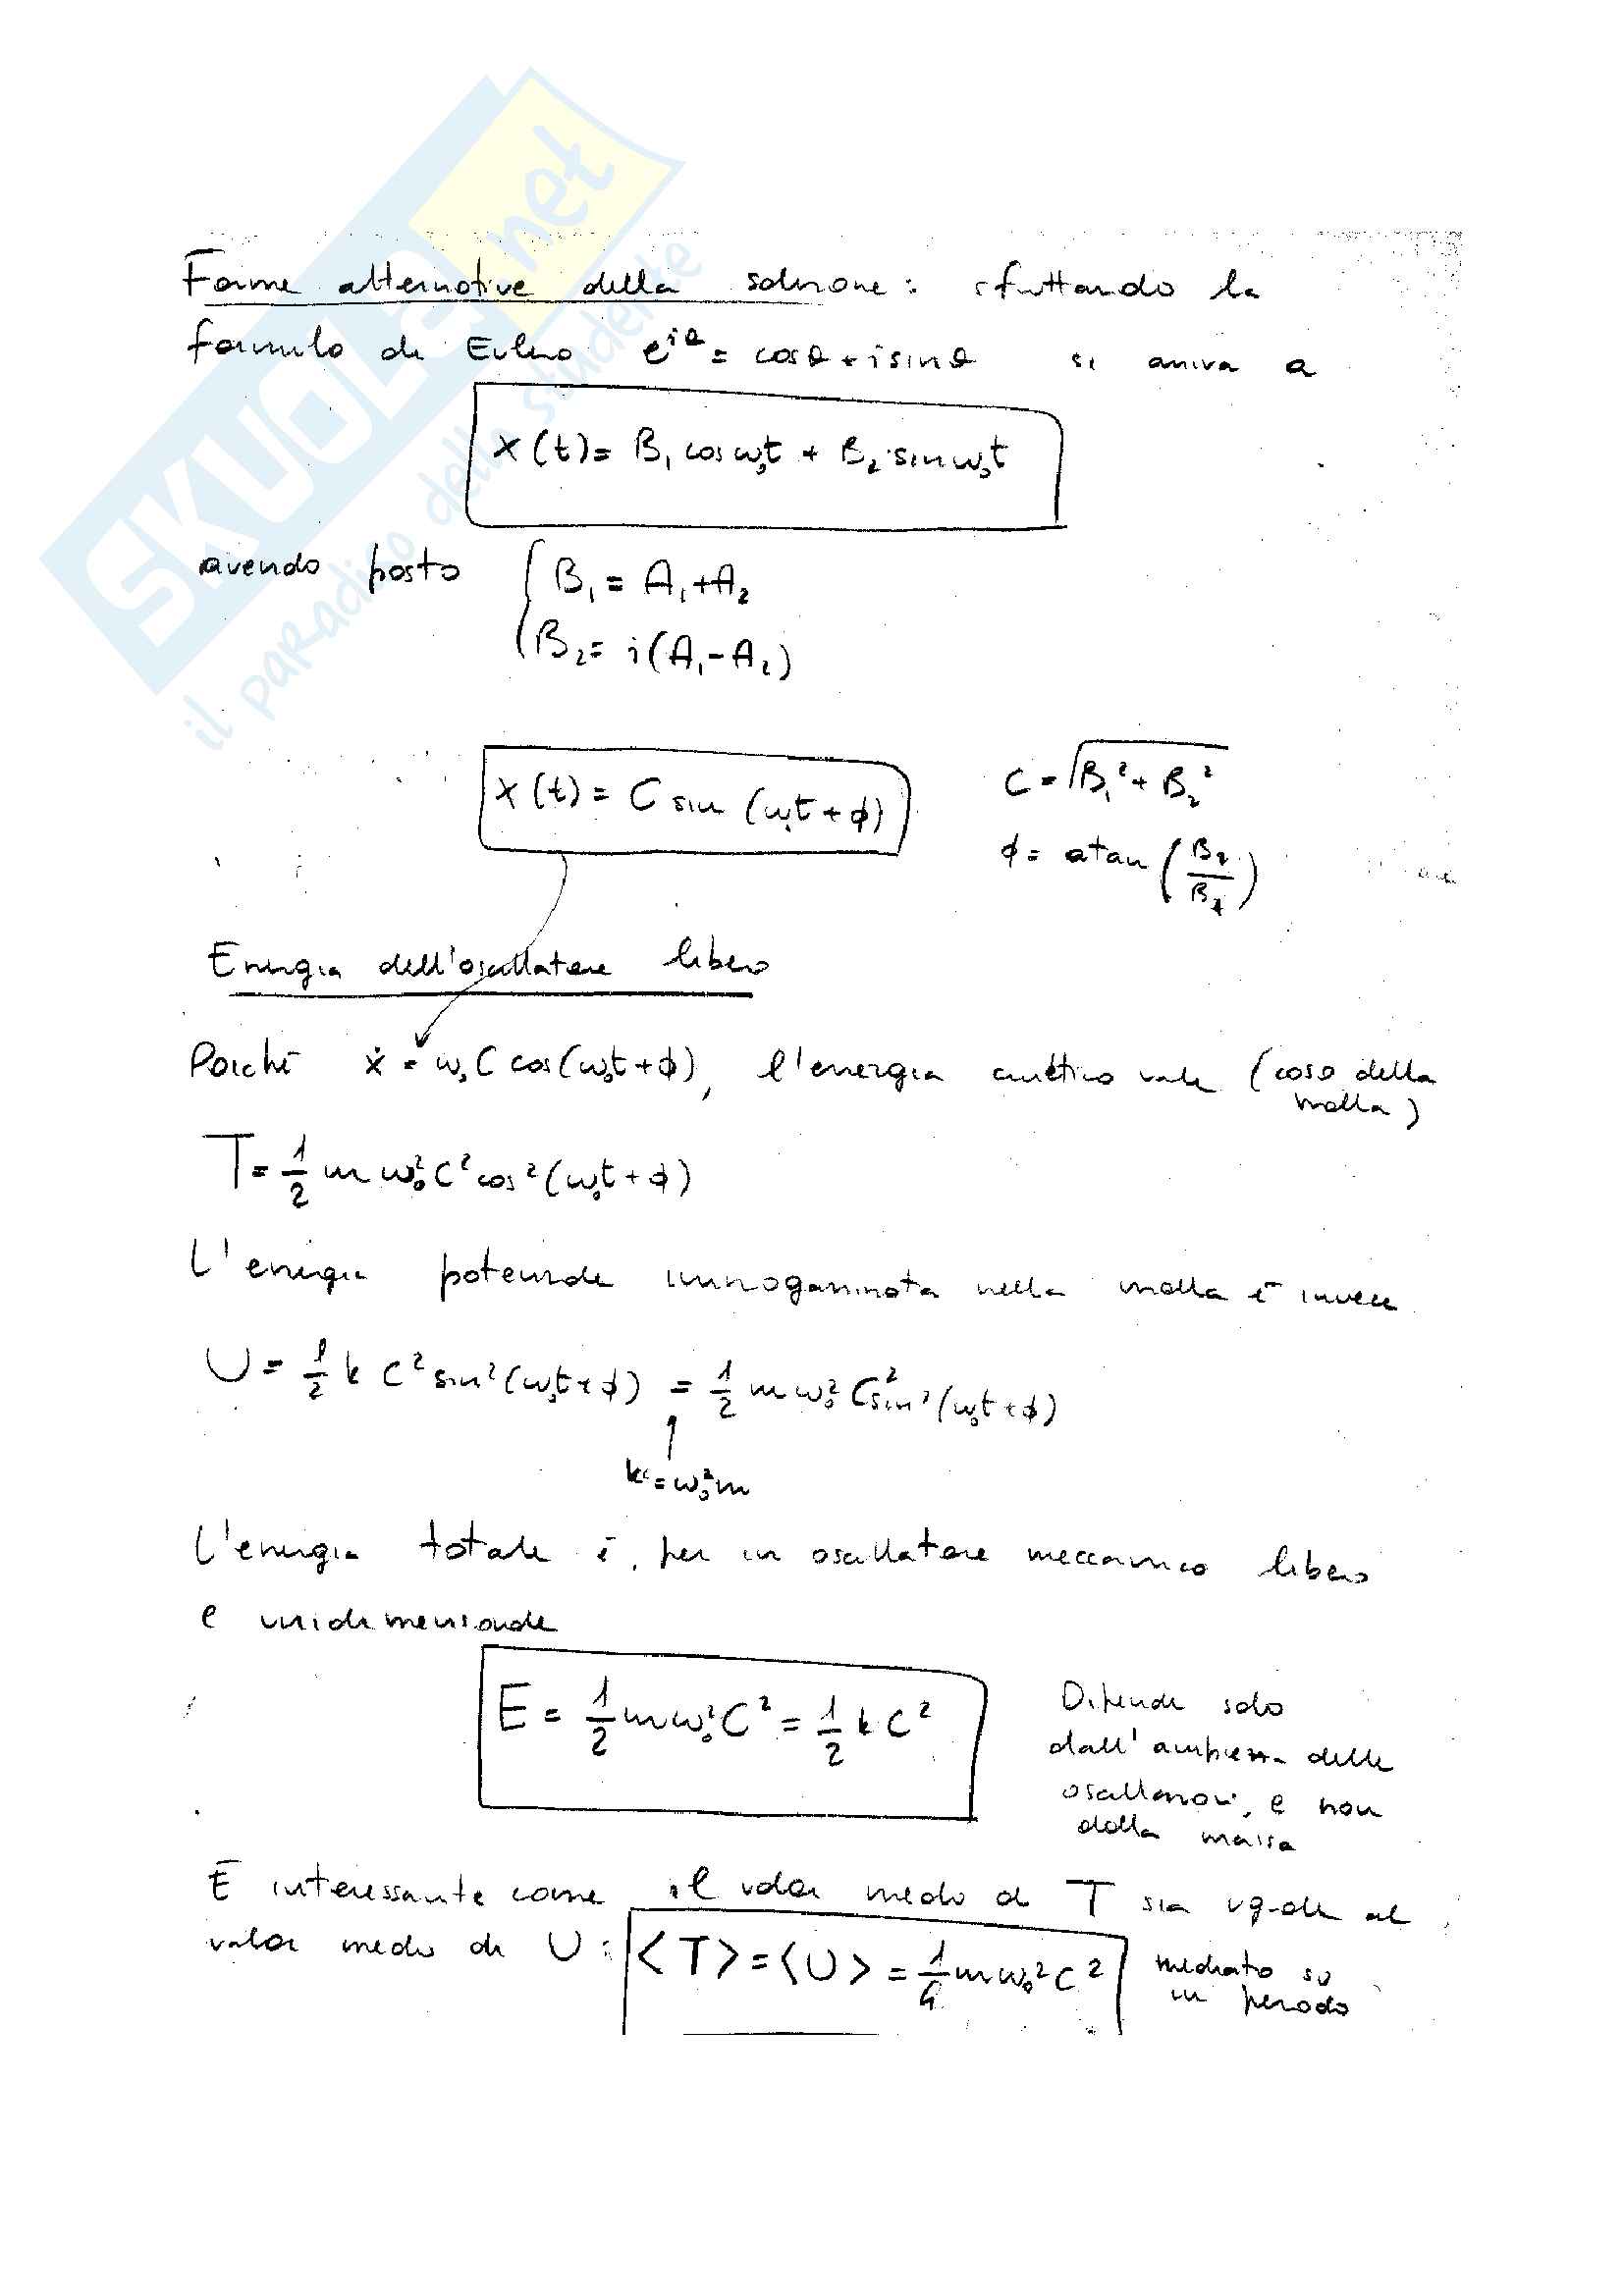 SKUOLA.net
il paradiso dello studente
Forme alternative della soluzione: sfruttando la
formula di Eulero e^{iθ} = cosθ + i sinθ si arriva a
x(t) = B₁ cos ω₀t + B₂ sin ω₀t
avendo posto { B₁ = A₁ + A₂
B₂ = i(A₁ - A₂)
x(t) = C sin (ω₀t + φ) C = √(B₁² + B₂²)
φ = atan
Energia dell'oscillatore libero
Poiché ẋ = ω₀ C cos(ω₀t + φ), l'energia cinetica vale (caso della
molla)
T = 1/2 m ω₀² C² cos² (ω₀t + φ)
L'energia potenziale immagazzinata nella molla è invece
U = 1/2 k C² sin² (ω₀t + φ) = 1/2 m ω₀² C² sin² (ω₀t + φ)
↑
k = ω₀² m
L'energia totale è, per un oscillatore meccanico libero
e unidimensionale
E = 1/2 m ω₀² C² = 1/2 k C²
Dipende solo
dall'ampiezza delle
oscillazioni, e non
dalla massa
È interessante come il valor medio di T sia uguale al
valor medio di U: <T> = <U> = 1/4 m ω₀² C² mediato su
un periodo